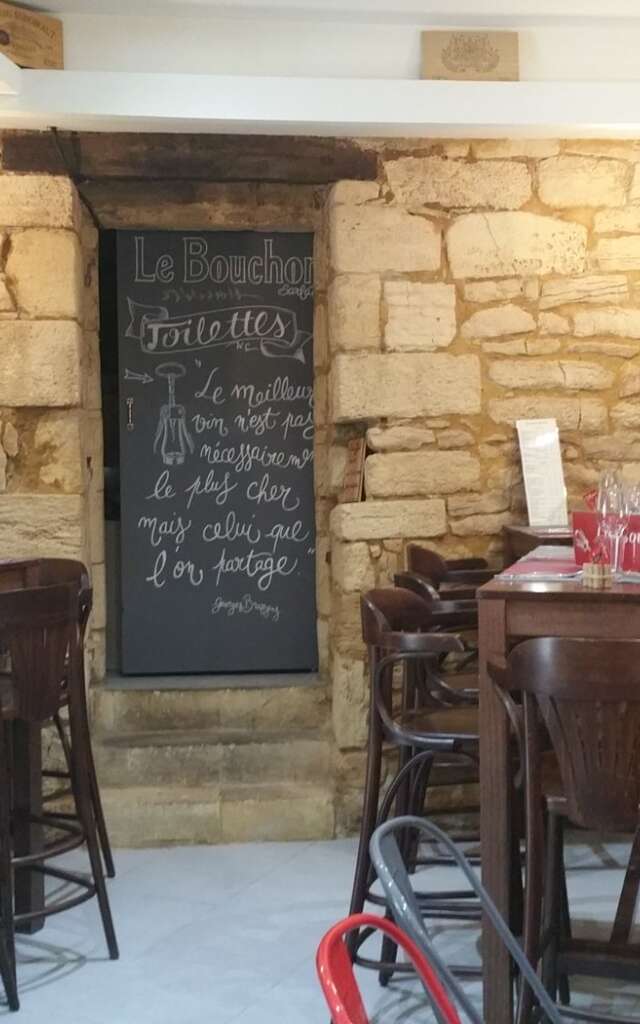 Le Bouchon
Toilettes
W.C
"Le meilleur
vin n'est pas
nécessairement
le plus cher
mais celui que
l'on partage."
Georges Brassens